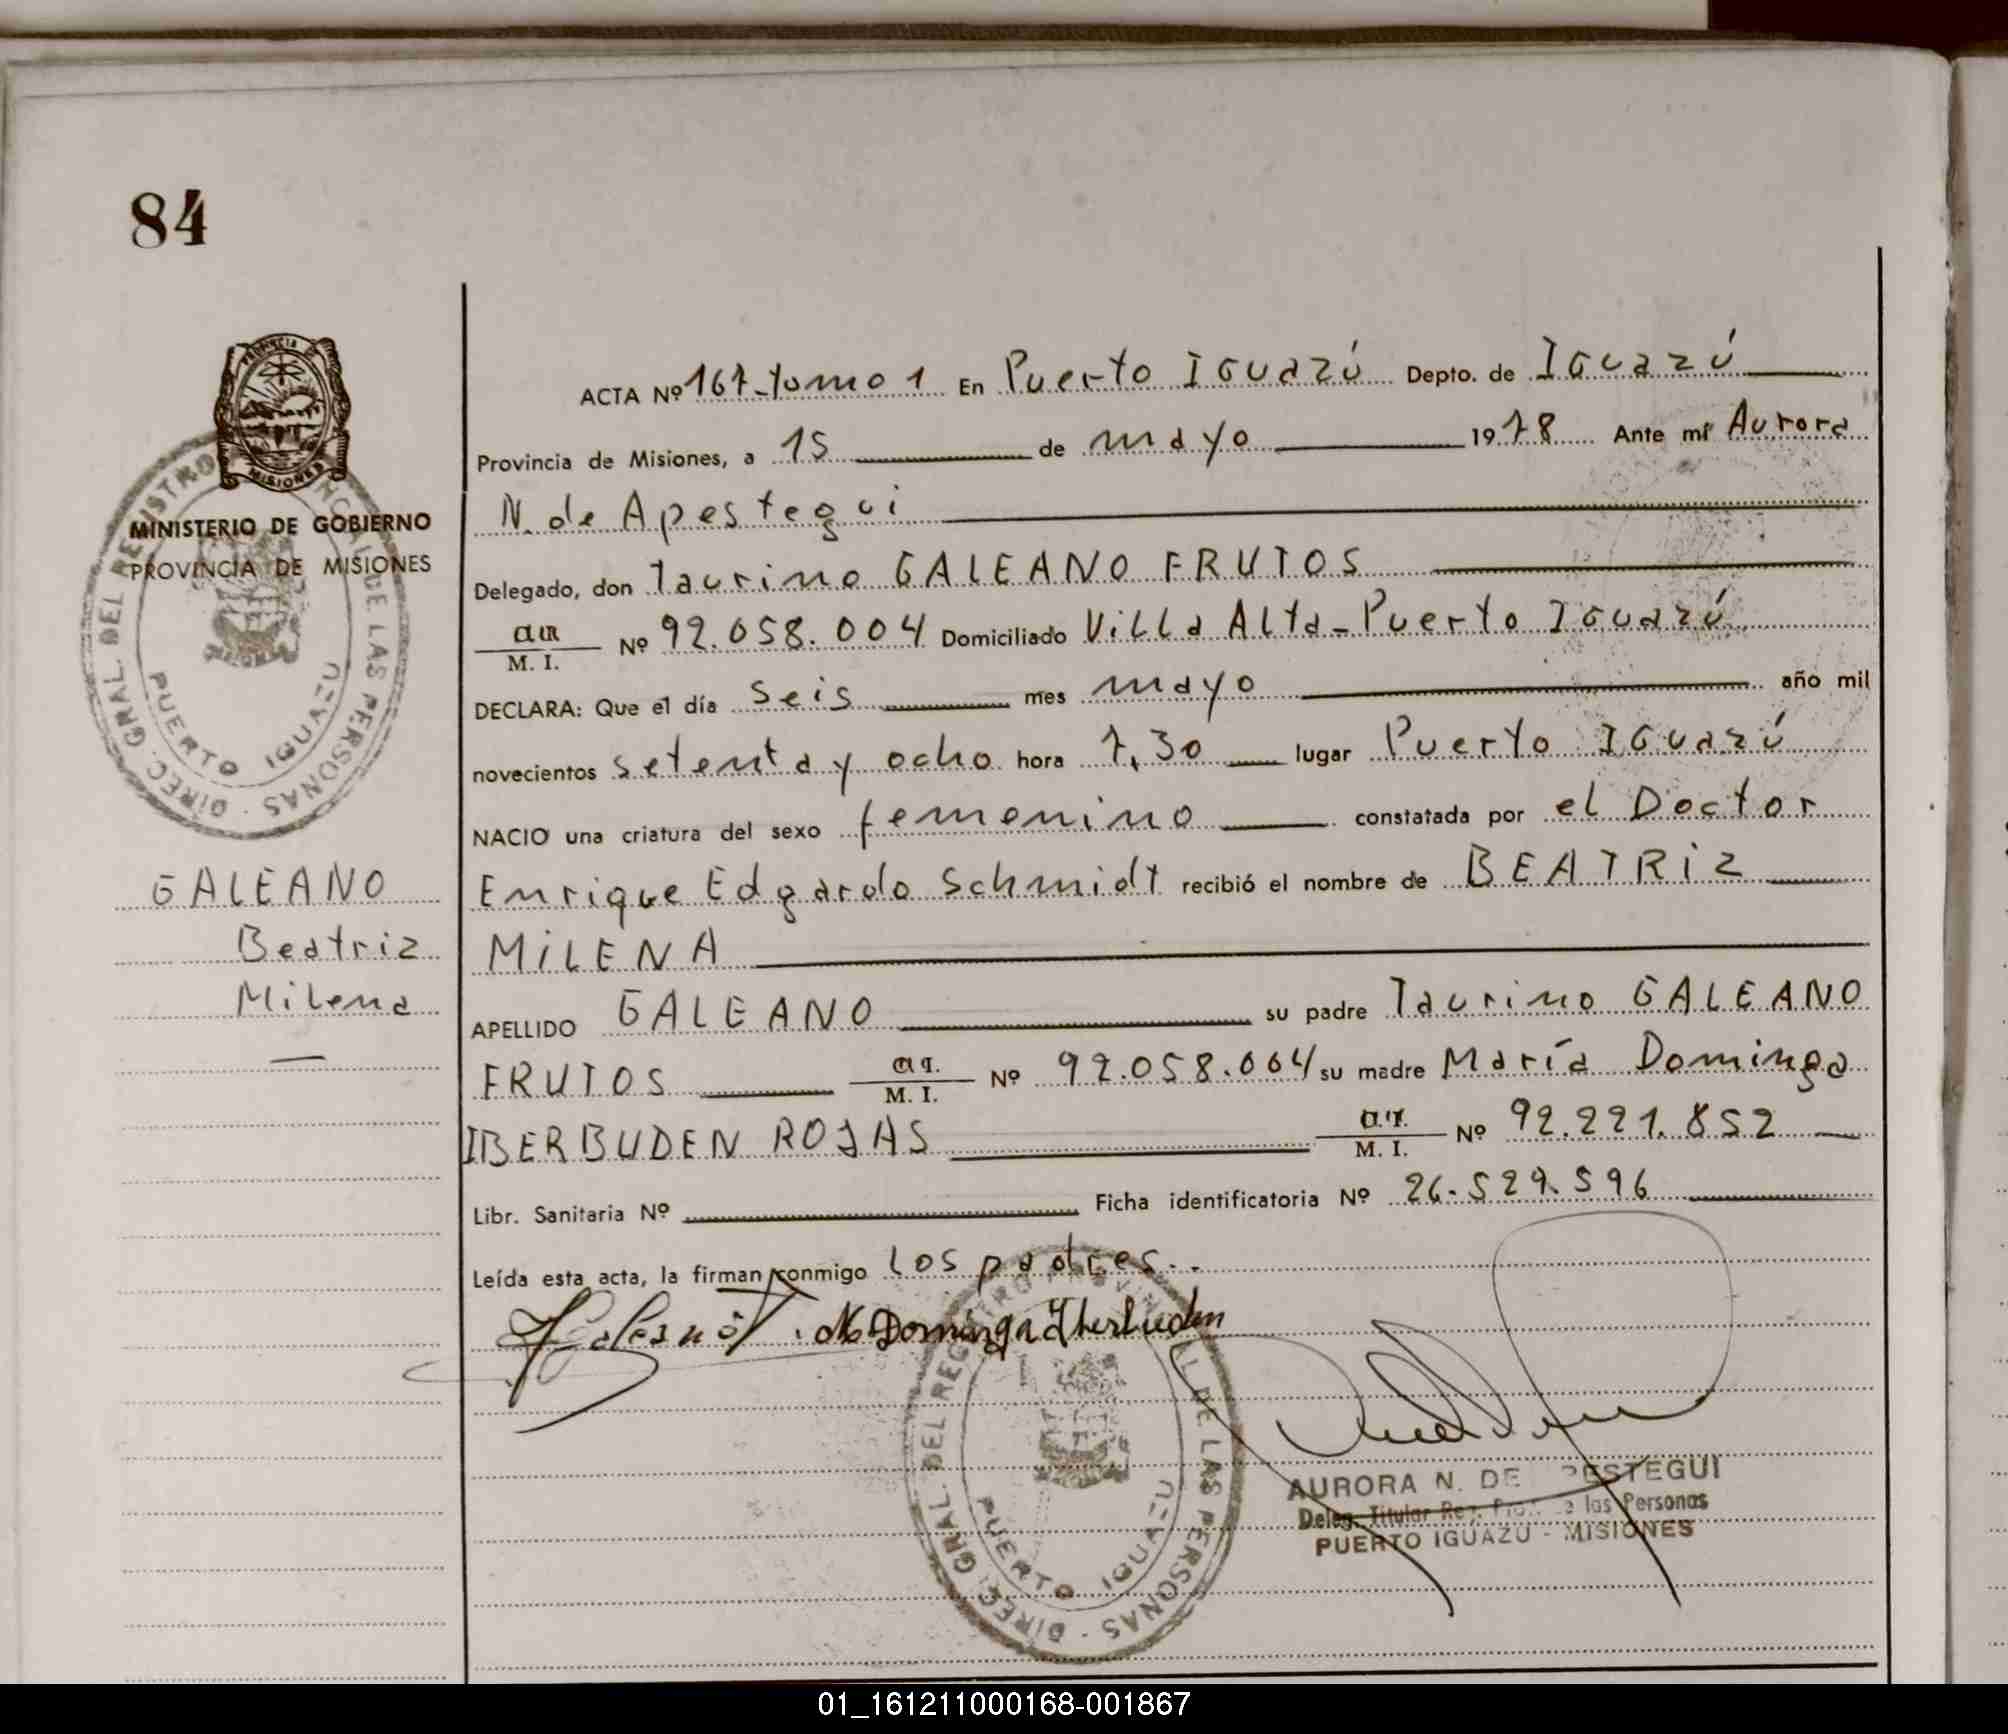 84
PROVINCIA DE
MISIONES
MINISTERIO DE GOBIERNO
PROVINCIA DE MISIONES
DIREC. GRAL. DEL REGISTRO PROVINCIAL DE LAS PERSONAS
PUERTO IGUAZU
GALEANO
Beatriz
Milena
ACTA Nº 167 tomo 1 En Puerto Iguazú Depto. de Iguazú
Provincia de Misiones, a 15 de mayo 1978 Ante mí Aurora
N. de Apestegui
Delegado, don Taurino GALEANO FRUTOS
M. I. Nº 92.058.004 Domiciliado Villa Alta - Puerto Iguazú
DECLARA: Que el día seis mes mayo año mil
novecientos setenta y ocho hora 7,30 lugar Puerto Iguazú
NACIO una criatura del sexo femenino constatada por el Doctor
Enrique Edgardo Schmidt recibió el nombre de BEATRIZ
MILENA
APELLIDO GALEANO su padre Taurino GALEANO
FRUTOS M. I. Nº 92.058.004 su madre María Dominga
IBERBUDEN ROJAS M. I. Nº 92.221.852
Libr. Sanitaria Nº Ficha identificatoria Nº 26.529.596
Leída esta acta, la firman conmigo los padres..
DIREC. GRAL. DEL REGISTRO PROVINCIAL DE LAS PERSONAS
PUERTO IGUAZU
AURORA N. DE PESTEGUI
Deleg. Titular Reg. las Personas
PUERTO IGUAZU - MISIONES
01_161211000168-001867